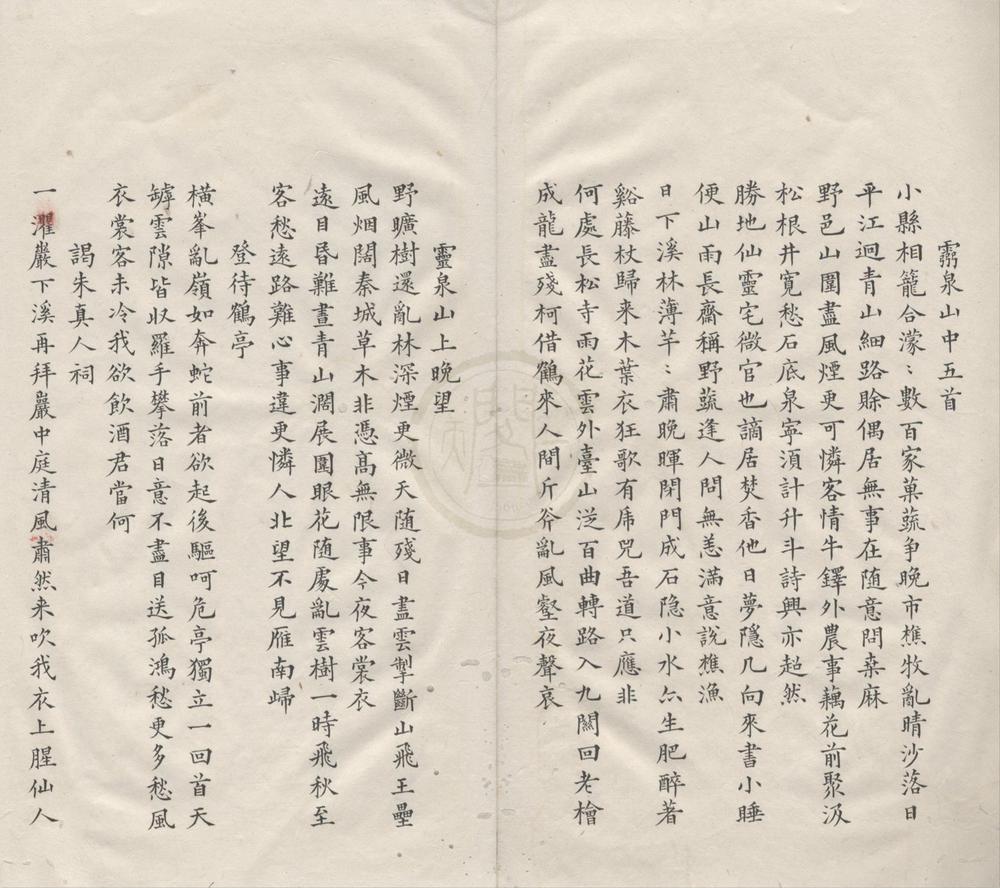 靈泉山中五首
小縣相籠合濛〻數百家菓蔬争晚市樵牧亂晴沙落日
平江迴青山細路賒偶居無事在随意問桒麻
野邑山圍盡風煙更可憐客情牛鐸外農事藕花前聚汲
松根井寛愁石底泉寧湏計升斗詩興亦超然
勝地仙靈宅微官也謫居焚香他日夢隱几向來書小睡
便山雨長齋稱野蔬逢人問無恙滿意說樵漁
日下溪林薄芊〻肅晚暉閉門成石隐小水亦生肥醉著
谿藤杖歸来木葉衣狂歌有虎兕吾道只應非
何處長松寺雨花雲外臺山泛百曲轉路入九關回老檜
成龍盡殘柯借鶴來人間斤斧亂風壑夜聲哀
靈泉山上晚望
野曠樹還亂林深煙更微天随殘日盡雲掣斷山飛王壘
風烟闊秦城草木非憑髙無限事今夜客裳衣
遠目昏難晝青山濶展圍眼花随處亂雲樹一時飛秋至
客愁遠路難心事違更憐人北望不見雁南歸
登待鶴亭
橫峯亂嶺如奔蛇前者欲起後驅呵危亭獨立一回首天
罅雲隙皆収羅手攀落日意不盡目送孤鴻愁更多愁風
衣裳客未冷我欲飲酒君當何
謁朱真人祠
一濯巖下溪再拜巖中庭清風肅然来吹我衣上腥仙人